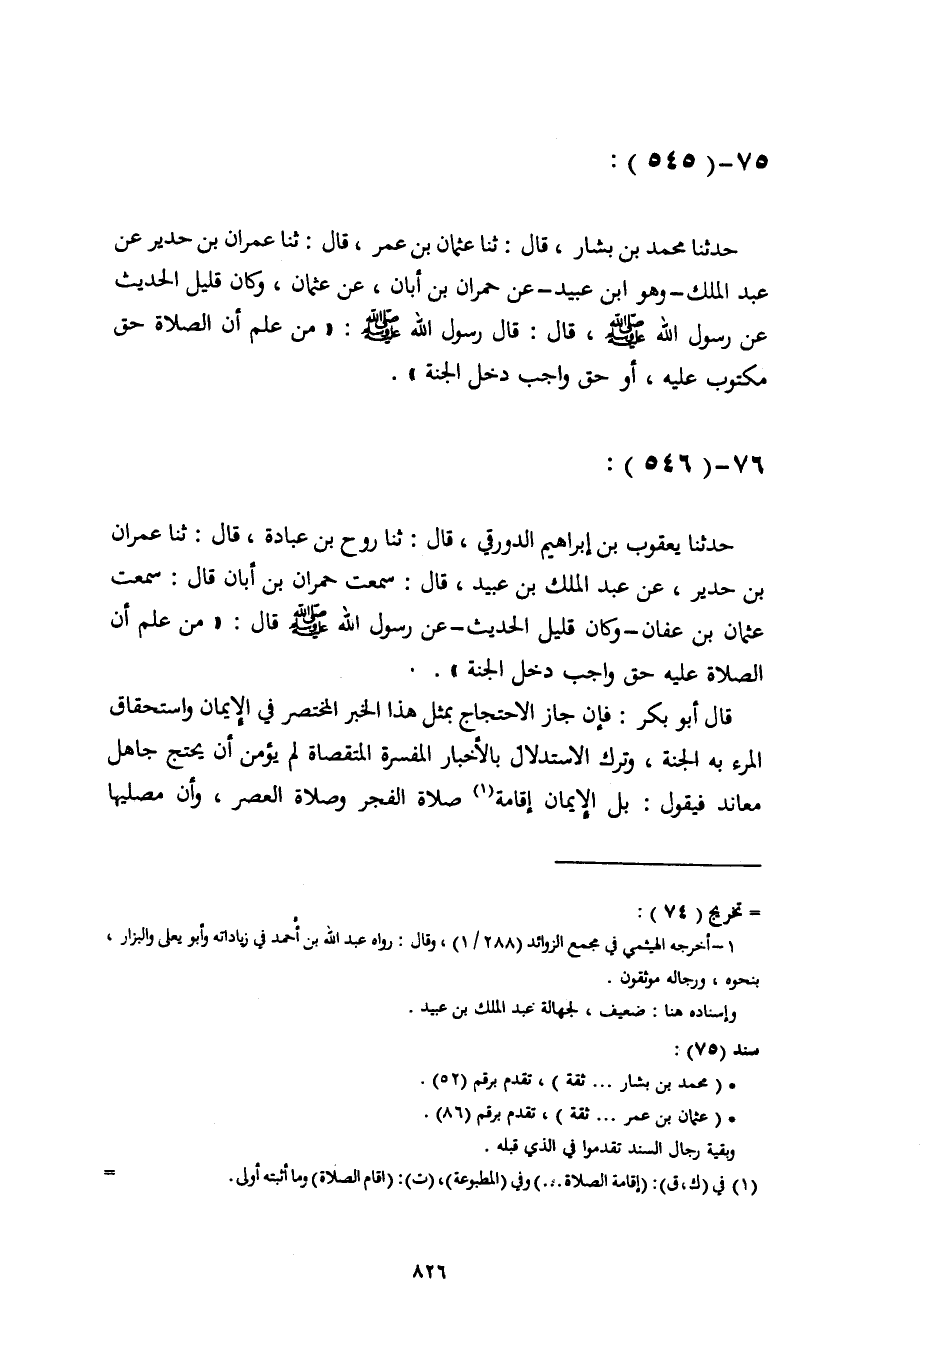 ٧٥-( ٥٤٥ ) :
حدثنا محمد بن بشار ، قال : ثنا عثمان بن عمر ، قال : ثنا عمران بن حدير عن
عبد الملك-وهو ابن عبيد-عن حمران بن أبان ، عن عثمان ، وكان قليل الحديث
عن رسول الله ﷺ ، قال : قال رسول الله ﷺ : « من علم أن الصلاة حق
مكتوب عليه ، أو حق واجب دخل الجنة » .
٧٦-( ٥٤٦ ) :
حدثنا يعقوب بن إبراهيم الدورقي ، قال : ثنا روح بن عبادة ، قال : ثنا عمران
بن حدير ، عن عبد الملك بن عبيد ، قال : سمعت حمران بن أبان قال : سمعت
عثمان بن عفان-وكان قليل الحديث-عن رسول الله ﷺ قال : « من علم أن
الصلاة عليه حق واجب دخل الجنة » .
قال أبو بكر : فإن جاز الاحتجاج بمثل هذا الخبر المختصر في الإيمان واستحقاق
المرء به الجنة ، وترك الاستدلال بالأخبار المفسرة المتقصاة لم يؤمن أن يحتج جاهل
معاند فيقول : بل الإيمان إقامة(١) صلاة الفجر وصلاة العصر ، وأن مصليها
= تخريج ( ٧٤ ) :
١-أخرجه الهيثمي في مجمع الزوائد (٢٨٨/ ١) ، وقال : رواه عبد الله بن أحمد في زياداته وأبو يعلى والبزار ،
بنحوه ، ورجاله موثقون .
وإسناده هنا : ضعيف ، لجهالة عبد الملك بن عبيد .
سند (٧٥) :
• ( محمد بن بشار ... ثقة ) ، تقدم برقم (٥٢) .
• ( عثمان بن عمر ... ثقة ) ، تقدم برقم (٨٦) .
وبقية رجال السند تقدموا في الذي قبله .
(١) في (ك،ق): (إقامة الصلاة...) وفي (المطبوعة)، (ت): (اقام الصلاة) وما أثبته أولى. =
٨٢٦